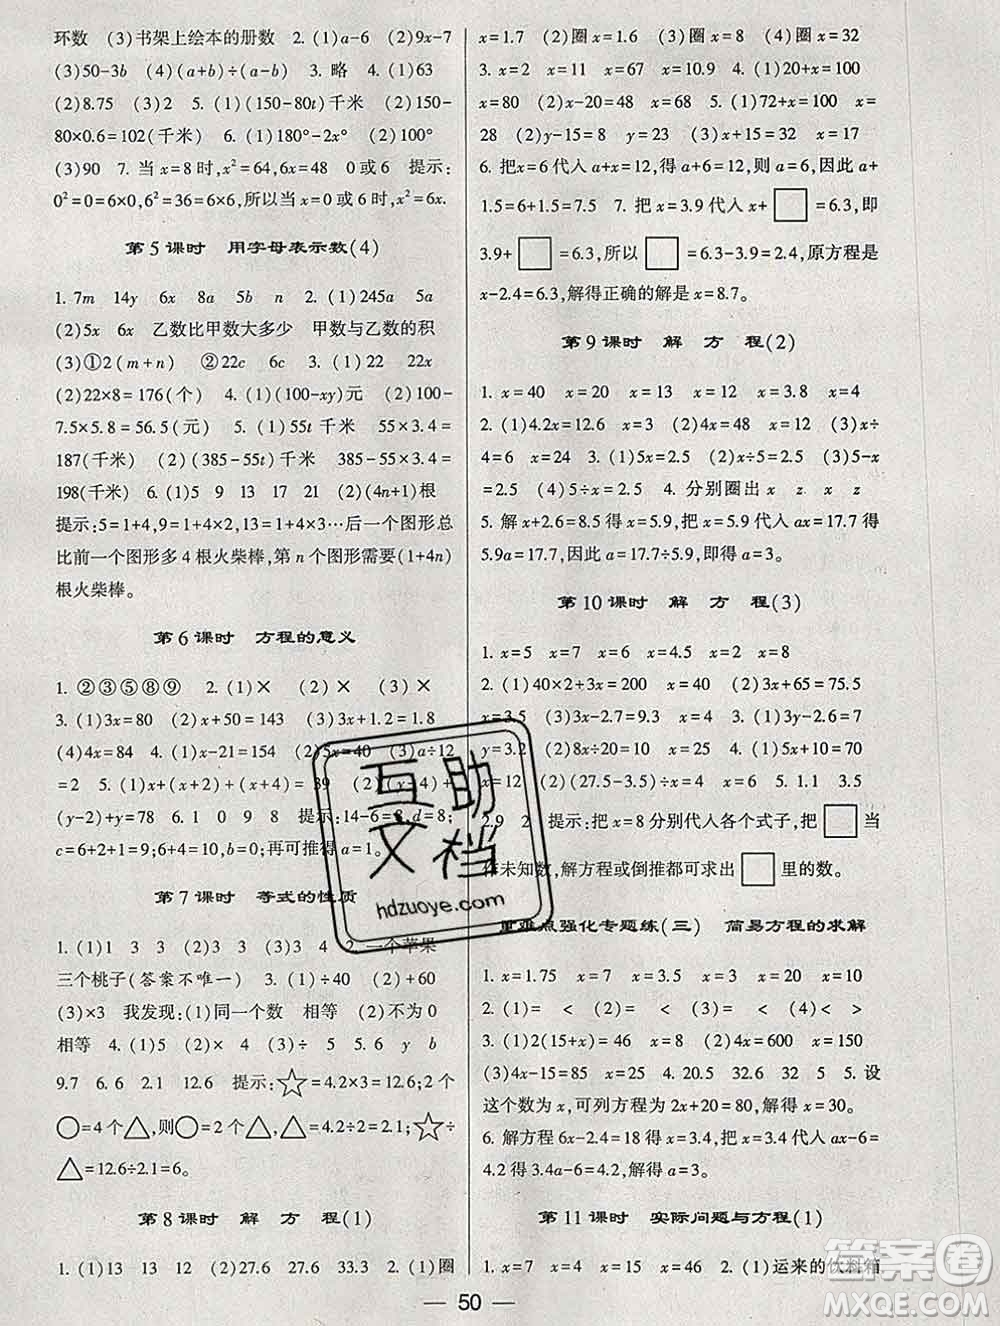 环数 (3)书架上绘本的册数 2. (1)a-6 (2)9x-7
(3)50-3b (4)(a+b)÷(a-b) 3. 略 4. (1)63
(2)8.75 (3)2 5. (1)(150-80t)千米 (2)150-
80×0.6=102(千米) 6. (1)180°-2x° (2)100°
(3)90 7. 当 x=8 时,x²=64,6x=48 0 或 6 提示:
0²=0=6×0,6²=36=6×6,所以当 x=0 或 6 时,x²=6x.
第 5 课时 用字母表示数(4)
1. 7m 14y 6x 8a 5b n 2. (1)245a 5a
(2)5x 6x 乙数比甲数大多少 甲数与乙数的积
(3)①2(m+n) ②22c 6c 3. (1)22 22x
(2)22×8=176(个) 4. (1)(100-xy)元 (2)100-
7.5×5.8=56.5(元) 5. (1)55t 千米 55×3.4=
187(千米) (2)(385-55t)千米 385-55×3.4=
198(千米) 6. (1)5 9 13 17 21 (2)(4n+1)根
提示:5=1+4,9=1+4×2,13=1+4×3…后一个图形总
比前一个图形多 4 根火柴棒,第 n 个图形需要(1+4n)
根火柴棒。
第 6 课时 方程的意义
1. ②③⑤⑧⑨ 2. (1)× (2)× (3)×
3. (1)3x=80 (2)x+50=143 (3)3x+1.2=1.8
(4)4x=84 4. (1)x-21=154 (2)5x=40 (3)a÷12
=2 5. (1)x+(x+2)+(x+4)=39 (2)(y+4)+
(y-2)+y=78 6. 1 0 9 8 提示:14-6=8,d=8;
c=6+2+1=9;6+4=10,b=0;再可推得 a=1。
第 7 课时 等式的性质
1. (1)1 3 (2)3 1 (3)3 4 2. 一个苹果
三个桃子(答案不唯一) 3. (1)÷40 (2)+60
(3)×3 我发现:(1)同一个数 相等 (2)不为 0
相等 4. (1)5 (2)× 4 (3)÷ 5 5. x b y
9.7 6. 6 2.1 12.6 提示:☆=4.2×3=12.6;2 个
○=4 个△,则○=2 个△,△=4.2÷2=2.1;☆÷
△=12.6÷2.1=6。
第 8 课时 解 方 程(1)
1. (1)13 13 12 (2)27.6 27.6 33.3 2. (1)圈
x=1.7 (2)圈 x=1.6 (3)圈 x=8 (4)圈 x=32
3. x=2 x=11 x=67 x=10.9 4. (1)20+x=100
x=80 (2)x-20=48 x=68 5. (1)72+x=100 x=
28 (2)y-15=8 y=23 (3)x+15=32 x=17
6. 把x=6代入 a+x=12,得 a+6=12,则 a=6,因此 a+
1.5=6+1.5=7.5 7. 把 x=3.9 代入 x+□=6.3,即
3.9+□=6.3,所以□=6.3-3.9=2.4,原方程是
x-2.4=6.3,解得正确的解是 x=8.7。
第 9 课时 解 方 程(2)
1. x=40 x=20 x=13 x=12 x=3.8 x=4
2. (1)4.2x=12.6 x=3 (2)4x=48 x=12 (3)x÷
4=6 x=24 3. (1)5+x (2)x÷5=2.5 (3)5-x
=2.5 (4)5÷x=2.5 4. 分别圈出 x z x z
5. 解 x+2.6=8.5 得 x=5.9,把 x=5.9 代入 ax=17.7 得
5.9a=17.7,因此 a=17.7÷5.9,即得 a=3。
第 10 课时 解 方 程(3)
1. x=5 x=5 x=7 x=6 x=4.5 x=2 x=8
2. (1)40×2+3x=200 x=40 (2)3x+65=75.5
x=3.5 (3)3x-2.7=9.3 x=4 3. (1)3y-2.6=7
y=3.2 (2)8x÷20=20 x=50 4. (1)5x+10=70
x=12 (2)(27.5-3.5)÷x=4 x=6 5. 1.1 3.5
2.9 2 提示:把 x=8 分别代入各个式子,把□当
作未知数,解方程或倒推都可求出□里的数。
重难点强化专题练(三) 简易方程的求解
1. x=1.75 x=7 x=15 x=25 x=20 x=10
2. (1)= < (2)= < (3)= < (4)< >
3. (1)2(15+x)=46 x=8 (2)4x=600 x=150
(3)4.5x-5=85 x=20 4. 20.5 32 32.8 5. 设
这个数为 x,可列方程为 2x+20=80,解得 x=30。
6. 解方程 6x-2.4=18 得 x=3.4,把 x=3.4 代入 ax-6=
4.2,得 3.4a-6=4.2,解得 a=3。
第 11 课时 实际问题与方程(1)
1. x=7 x=4 x=46 x=9 2. (1)运来的饮料箱
— 50 —
互助
文档
hdzuoye.com
答案圈
MXQE.COM